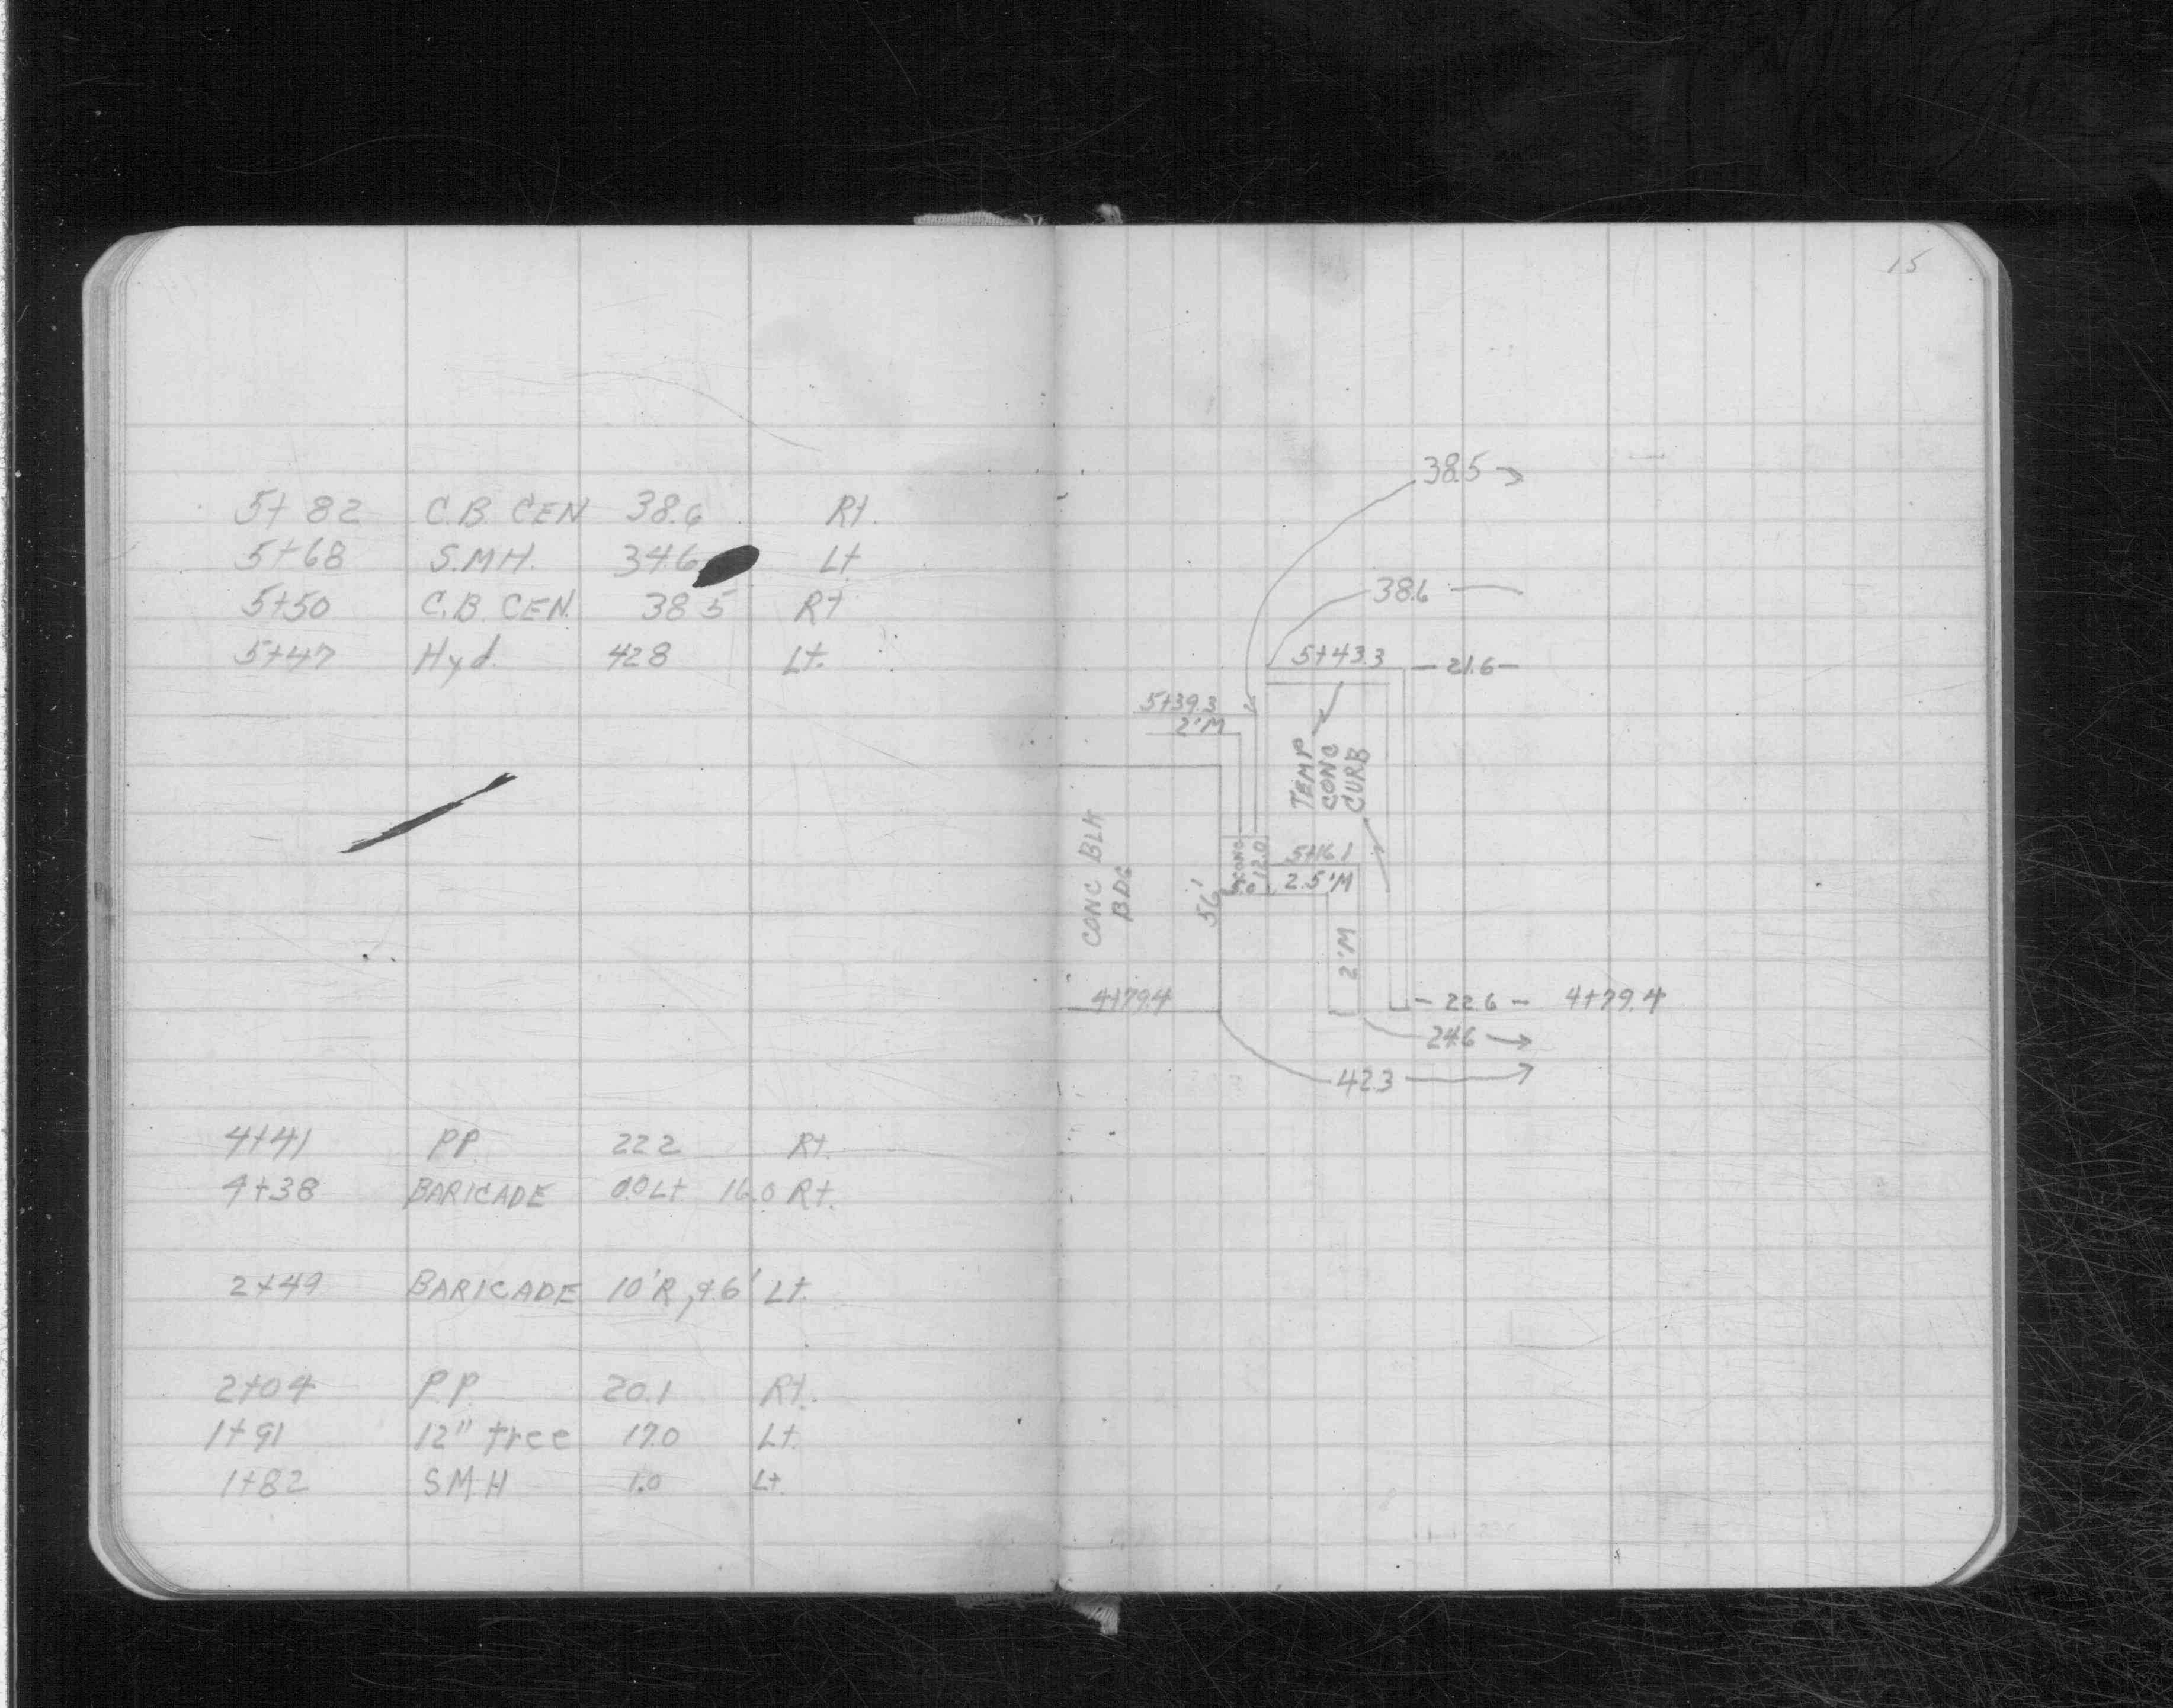 5+82 C.B. CEN 38.6 Rt.
5+68 S.M.H. 34.6 Lt
5+50 C.B. CEN. 38.5 Rt
5+47 Hyd. 42.8 Lt.
4+41 PP 22.2 Rt.
4+38 BARICADE 0.0 Lt 16.0 Rt.
2+49 BARICADE 10'R, 9.6' Lt.
2+04 P.P. 20.1 Rt.
1+91 12" tree 17.0 Lt.
1+82 S.M.H 1.0 Lt.
15
38.5
38.6
5+43.3 - 21.6 -
5+39.3
2'M
TEMP
CONC
CURB
CONC BLK
BDG
56'
CONC
12.0
5+16.1
2.5'M
2'M
4+79.4
- 22.6 - 4+79.4
24.6
42.3